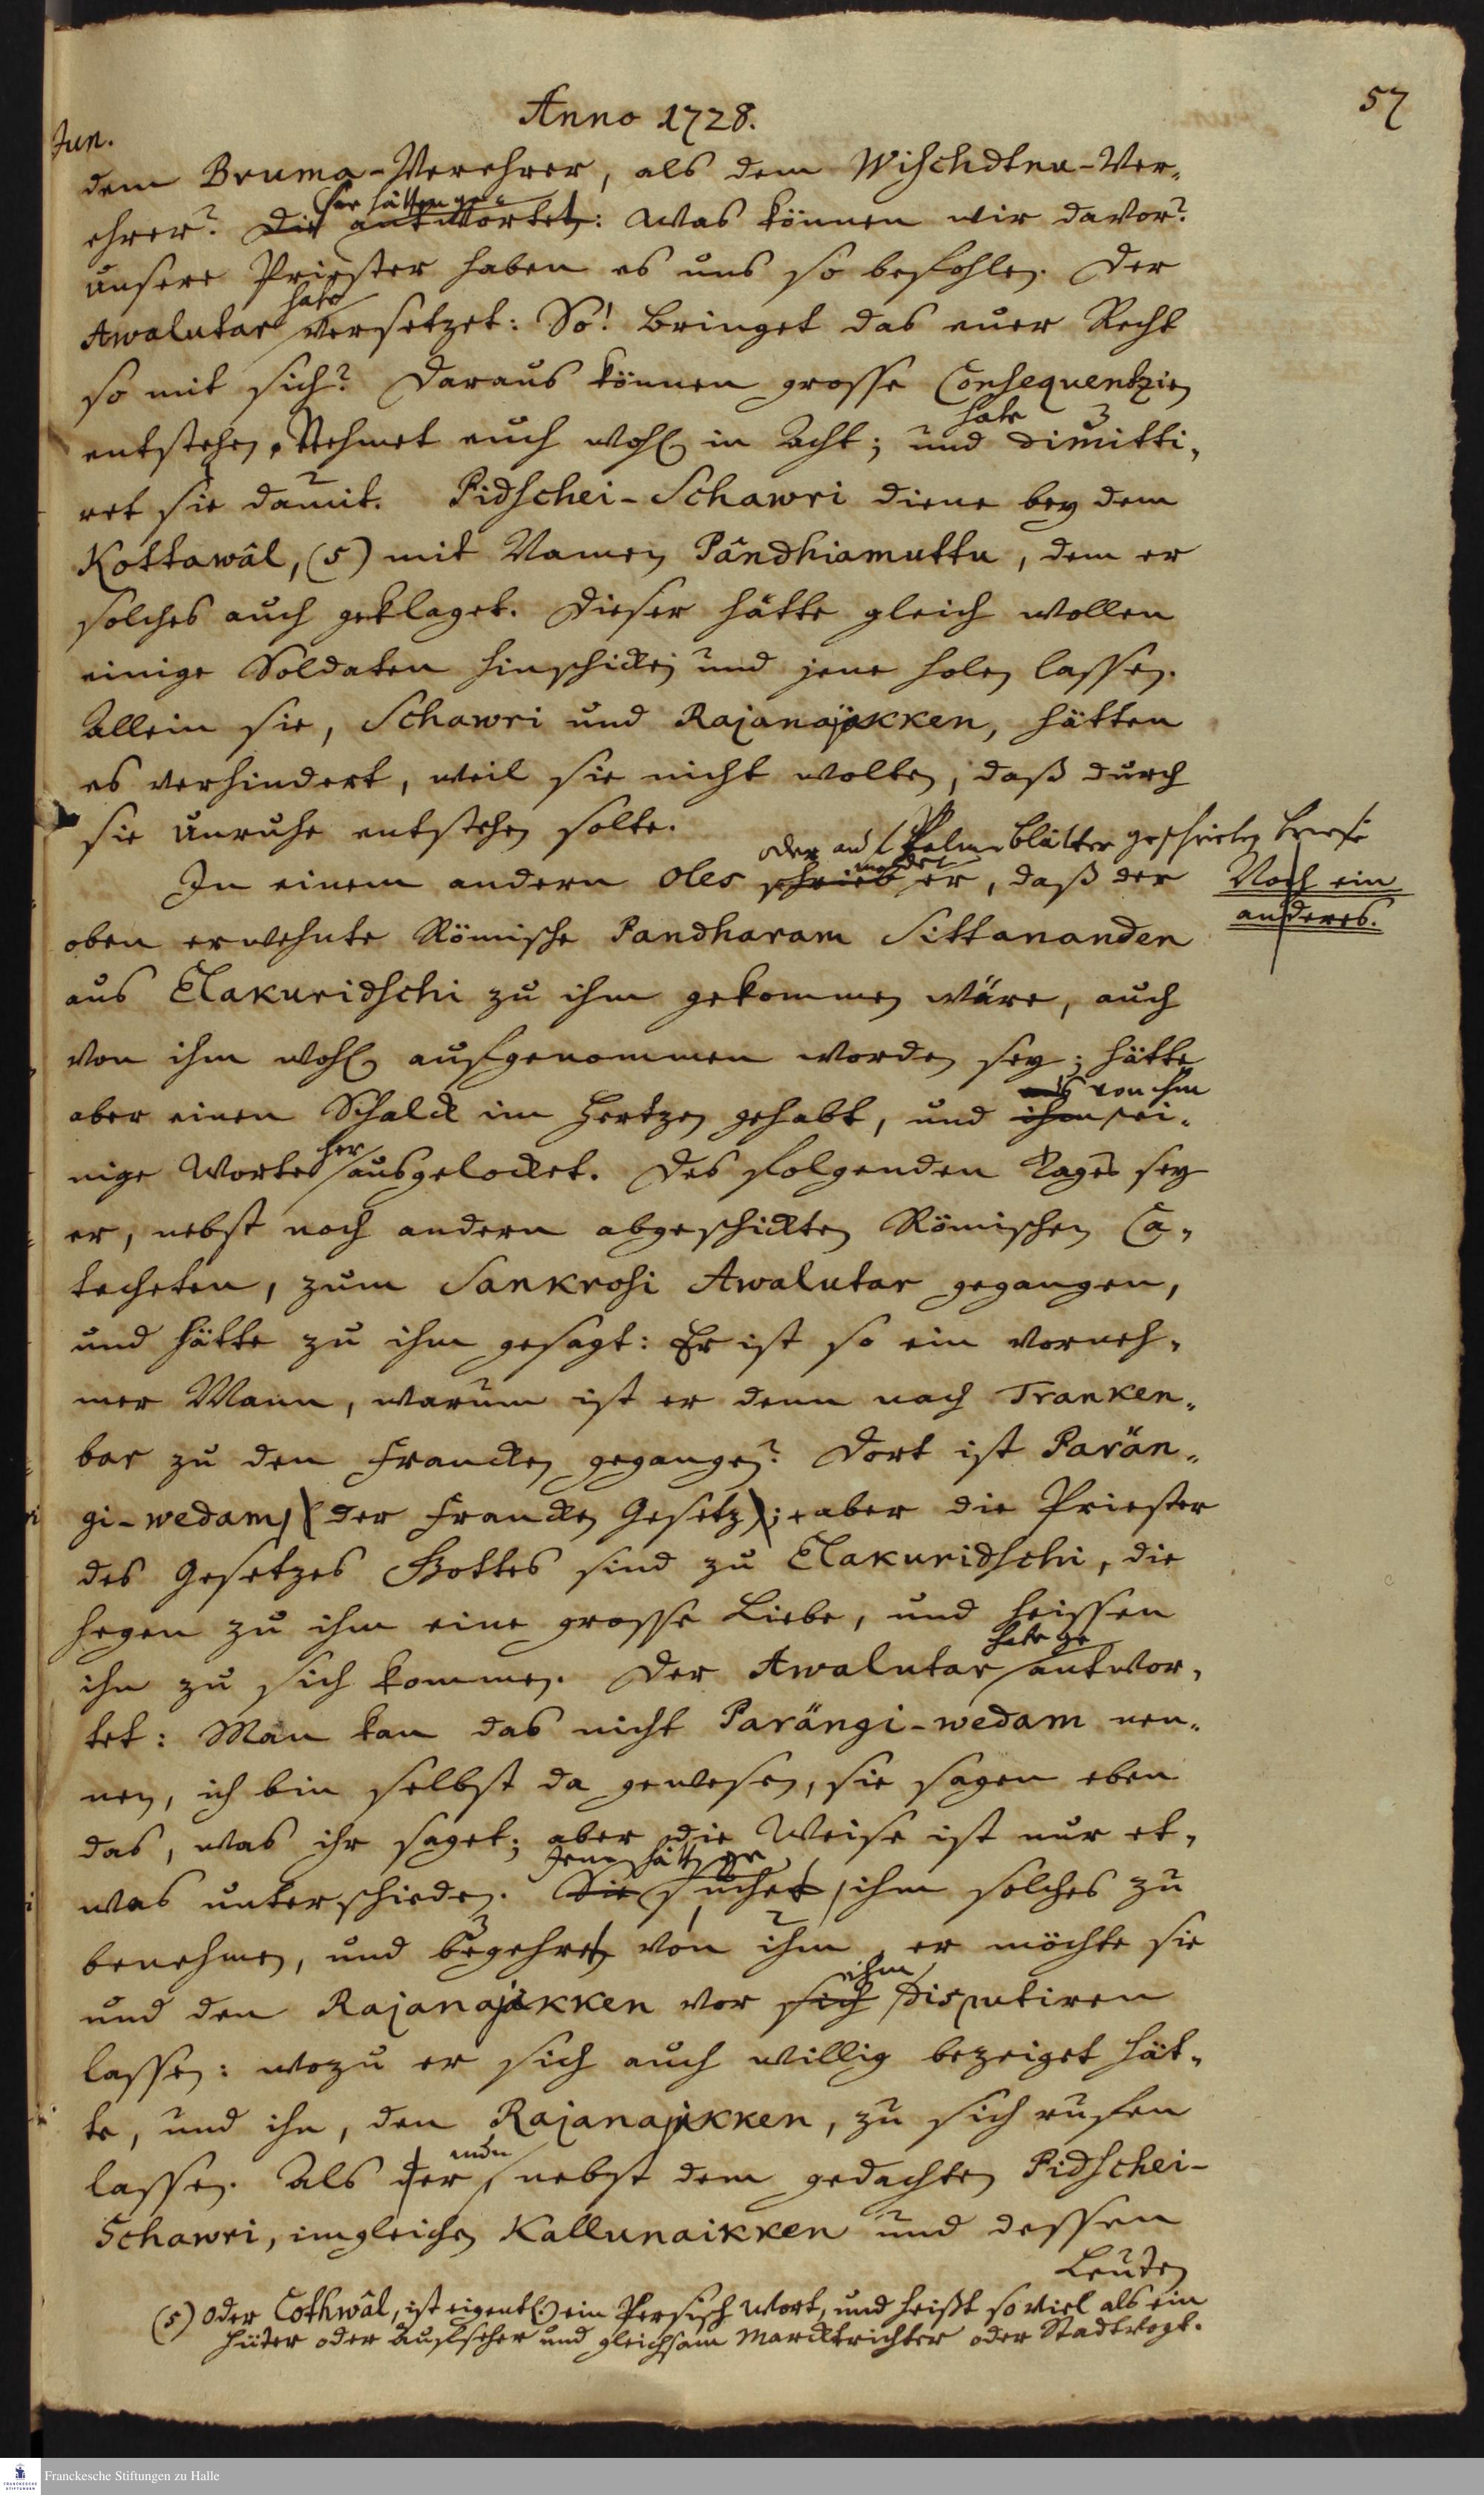 Anno 1728.
57
Jun.
dem Bruma-Verehrer, als dem Wischdtnu-Ver-
ehrer? Die antworten: Was können wir davor?
unsere Priester haben es uns so befohlen. Der
habe
Awalutar versetzet: So! bringet das euer Recht
so mit sich? Daraus können grosse Consequentzien
habe 3
entstehen. Nehmet euch wohl in Acht; und dimitti-
2
ret sie damit. Pidschei-Schawri diene bey dem
Kottawâl, (5) mit Namen Pândhiamuttu, dem er
solches auch geklaget. Dieser hätte gleich wollen
einige Soldaten hinschicken und jene holen lassen.
Allein sie, Schawri und Rajanajakken, hätten
es verhindert, weil sie nicht wolten, daß durch
sie Unruhe entstehen solte.
oder auf Palm-blätter geschrieben briefe
meldet
In einem andern Oles schrieb er, daß der
Noch ein
anderes.
oben erwehnte Römische Pandharam Sittananden
aus Elakuridschi zu ihm gekommen wäre, auch
von ihm wohl aufgenommen worden sey; hätte
von ihm
aber einen Schalck im Hertzen gehabt, und ihm ei-
her
nige Worte ausgelocket. Des folgenden Tages sey
er, nebst noch andern abgeschickten Römischen Ca-
techeten, zum Sankrosi Awalutar gegangen,
und hätte zu ihm gesagt: Er ist so ein vorneh-
mer Mann, warum ist er denn nach Tranken-
bar zu den Francken gegangen? Dort ist Parän-
gi-wedam, (der Francken Gesetz); aber die Priester
des Gesetzes Gottes sind zu Elakuridschi, die
hegen zu ihm eine grosse Liebe, und heissen
habe ge
ihn zu sich kommen. Der Awalutar antwor-
tet: Man kan das nicht Parängi-wedam nen-
nen, ich bin selbst da gewesen, sie sagen eben
das, was ihr saget; aber die Weise ist nur et-
Jene hätten ge
was unterschieden. Sie suchet, ihm solches zu
3 1 2
benehmen, und begehret von ihm, er möchte sie
ihm
und den Rajanajakken vor sich disputiren
lassen: wozu er sich auch willig bezeiget hät-
te, und ihn, den Rajanajakken, zu sich rufen
nun
lassen. Als der nebst dem gedachten Pidschei-
Schawri, imgleichen Kallunaikken und dessen
Leuten
(5) Oder Cothwâl, ist eigentl. ein Persisch Wort, und heißt so viel als ein
Hüter oder Aufseher und gleichsam Marcktrichter oder Stadtvogt.
Franckesche Stiftungen zu Halle